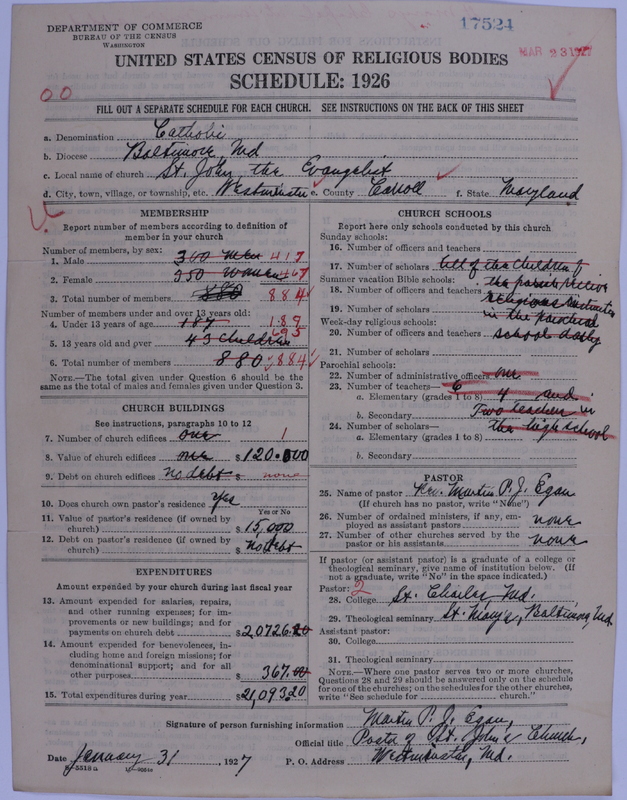 DEPARTMENT OF COMMERCE
BUREAU OF THE CENSUS
WASHINGTON
17524
MAR 23 1927
UNITED STATES CENSUS OF RELIGIOUS BODIES
SCHEDULE: 1926
00
FILL OUT A SEPARATE SCHEDULE FOR EACH CHURCH. SEE INSTRUCTIONS ON THE BACK OF THIS SHEET
a. Denomination Catholic
b. Diocese Baltimore, Md
c. Local name of church St. John the Evangelist
d. City, town, village, or township, etc. Westminster e. County Carroll f. State Maryland
MEMBERSHIP
Report number of members according to definition of member in your church
Number of members, by sex:
1. Male 360 men 417
2. Female 350 women 467
3. Total number of members 880 884
Number of members under and over 13 years old:
4. Under 13 years of age 187 189
5. 13 years old and over 43 children 695
6. Total number of members 880 884
NOTE.—The total given under Question 6 should be the same as the total of males and females given under Question 3.
CHURCH BUILDINGS
See instructions, paragraphs 10 to 12
7. Number of church edifices one 1
8. Value of church edifices one $120.000
9. Debt on church edifices no debt $ none
10. Does church own pastor's residence? Yes
Yes or No
11. Value of pastor's residence (if owned by church) $15,000
12. Debt on pastor's residence (if owned by church) $ no debt
EXPENDITURES
Amount expended by your church during last fiscal year
13. Amount expended for salaries, repairs, and other running expenses; for improvements or new buildings; and for payments on church debt $20726.20
14. Amount expended for benevolences, including home and foreign missions; for denominational support; and for all other purposes $ 367.00
15. Total expenditures during year $21,093.20
CHURCH SCHOOLS
Report here only schools conducted by this church
Sunday schools:
16. Number of officers and teachers
17. Number of scholars All of the children of
Summer vacation Bible schools: the parish receive
18. Number of officers and teachers religious instruction
19. Number of scholars in the parochial
Week-day religious schools:
20. Number of officers and teachers school daily
21. Number of scholars
Parochial schools:
22. Number of administrative officers one
23. Number of teachers— 6
a. Elementary (grades 1 to 8) 4 and
b. Secondary Two teachers in
24. Number of scholars— the high school
a. Elementary (grades 1 to 8)
b. Secondary
PASTOR
25. Name of pastor Rev. Martin P. J. Egan
(If church has no pastor, write "None")
26. Number of ordained ministers, if any, employed as assistant pastors none
27. Number of other churches served by the pastor or his assistants none
If pastor (or assistant pastor) is a graduate of a college or theological seminary, give name of institution below. (If not a graduate, write "No" in the space indicated.)
Pastor: 2
28. College St. Charles, Md.
29. Theological seminary St. Mary's, Baltimore, Md.
Assistant pastor:
30. College
31. Theological seminary
NOTE.—Where one pastor serves two or more churches, Questions 28 and 29 should be answered only on the schedule for one of the churches; on the schedules for the other churches, write "See schedule for church."
Signature of person furnishing information Martin P. J. Egan,
Official title Pastor of St. John's Church,
Date January 31, 1927 P. O. Address Westminster, Md.